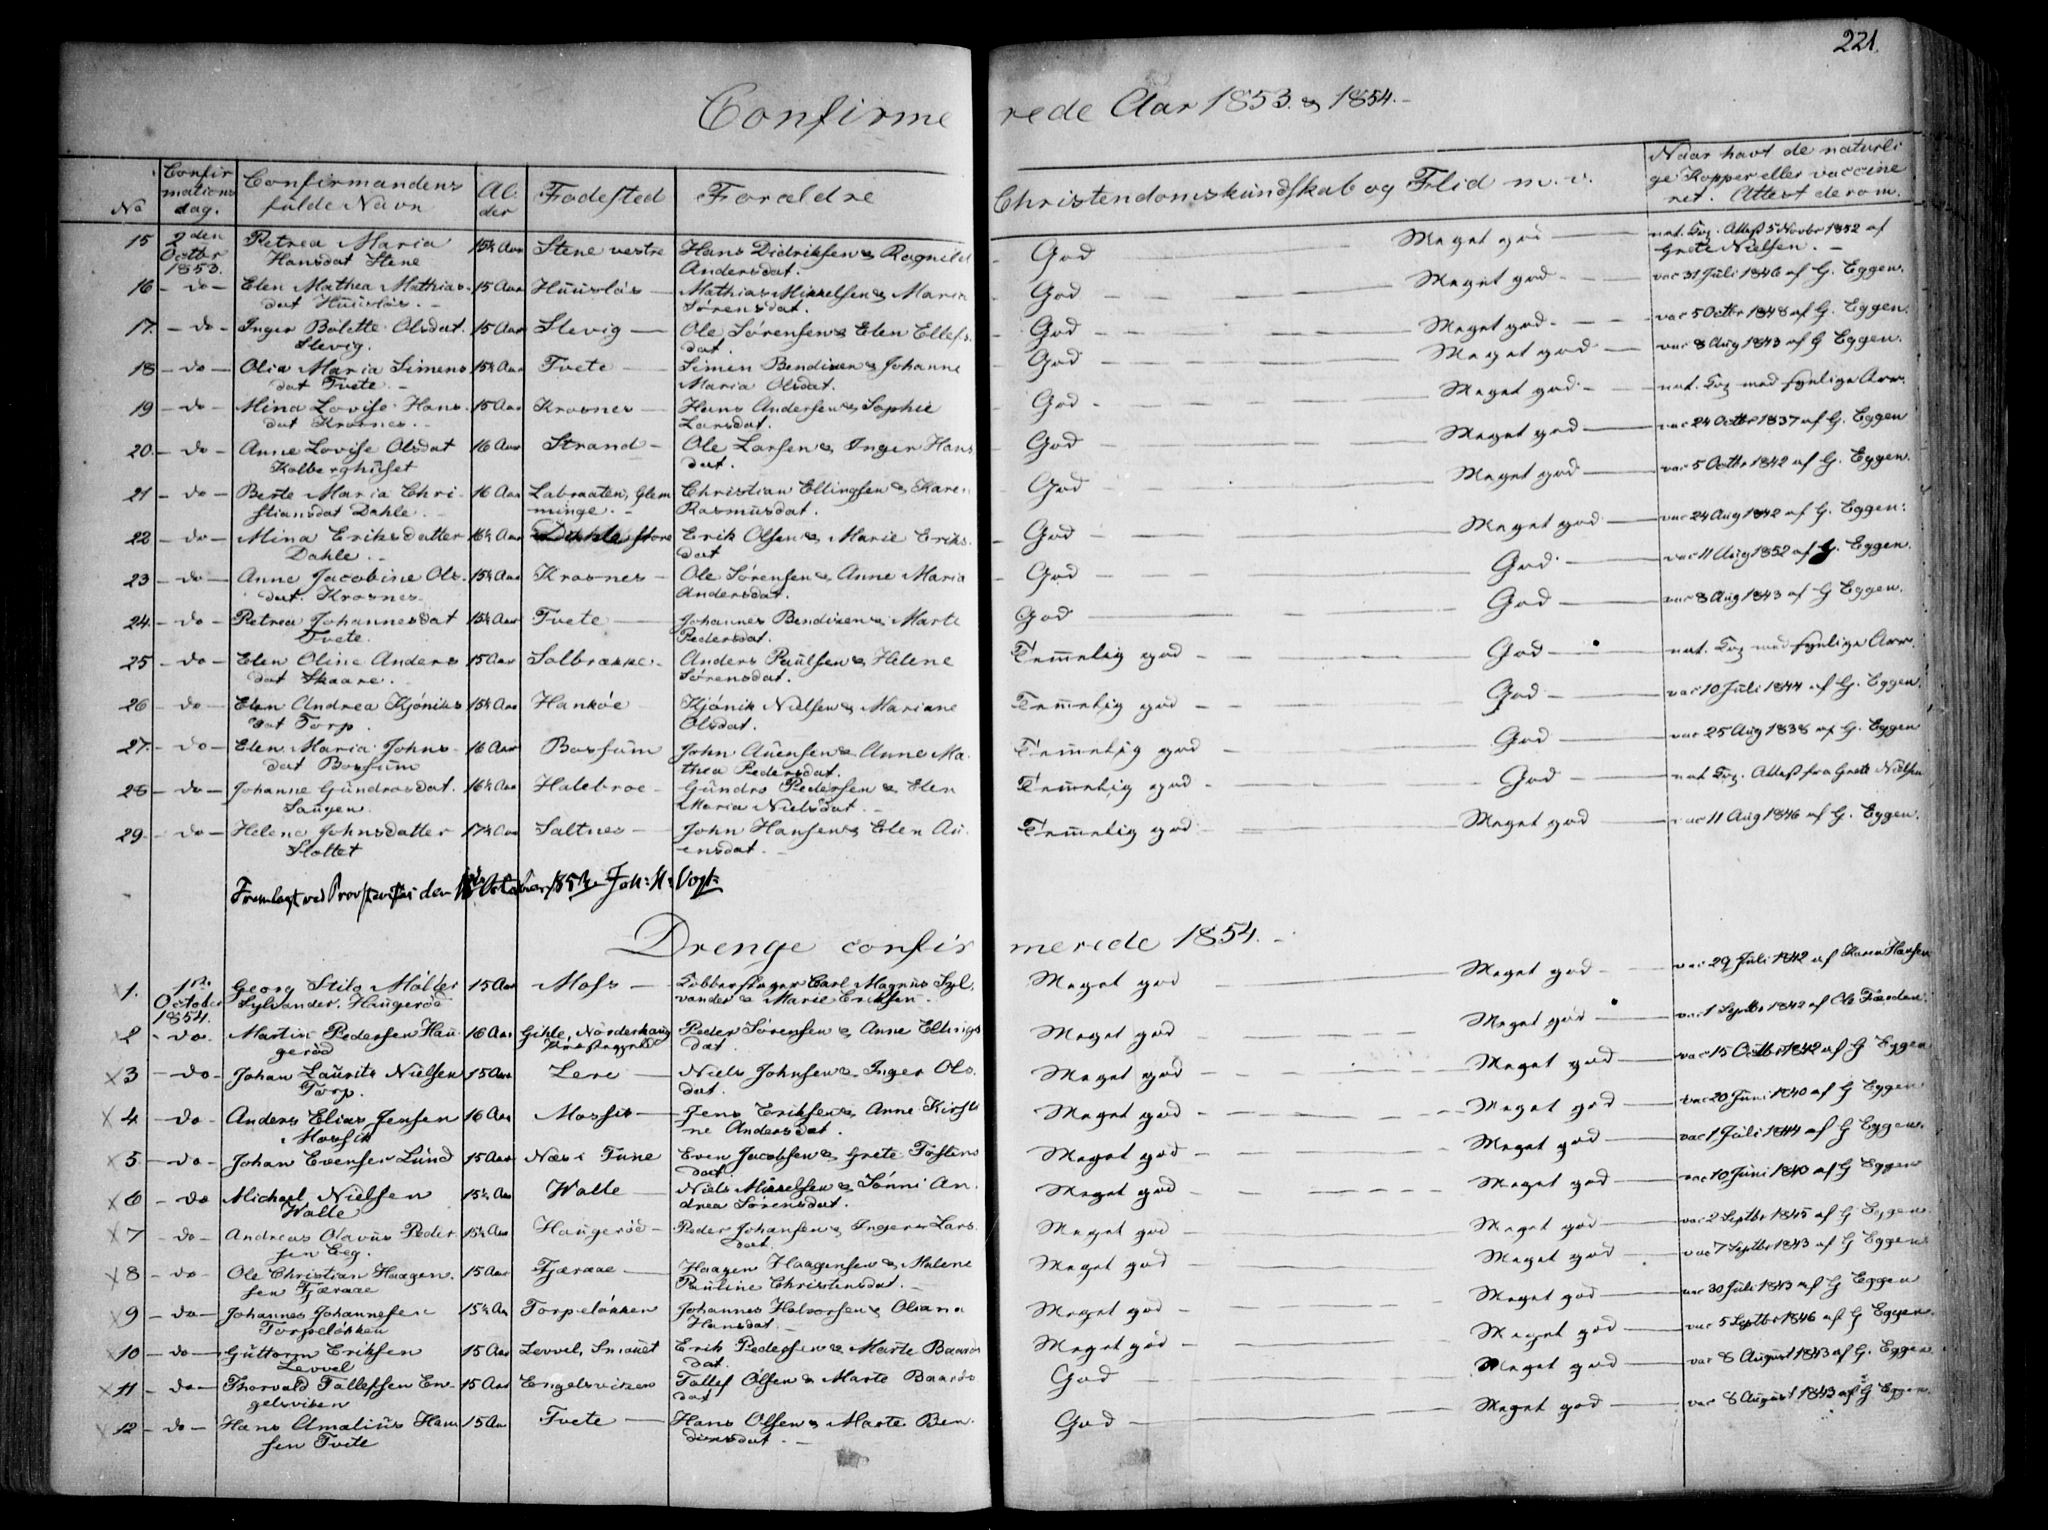 221.
Confirmerede Aar 1853. & 1854.
No
Confirmations dag.
Confirmandens fulde Navn
Alder
Fødested
Forældre
Christendomskundskab og Flid m. v.
Naar havt de naturlige Kopper eller vaccineret. Attest derom.
15 2den Octbr 1853. Petrea Maria Hansdat Stene 15½ Aar Stene vestre Hans Didriksen & Ragnild Andersdat. God Meget god nat. Kop. Attest 5 Novbr 1852 af Grete Nielsen.
16 do Elen Mathea Mathiasdat Huusløs 15 Aar Huusløs Mathias Mikkelsen & Maria Sørensdat. God Meget god vac 31 Juli 1846 af G. Eggen.
17. do Inger Bolette Olsdat. Slevig. 15 Aar Slevig Ole Sørensen & Elen Ellefsdat. God Meget god vac 5 Octbr 1848 af G. Eggen.
18 do Olia Maria Simensdat Tvete 15½ Aar Tvete Simen Bendixen & Johanne Maria Olsdat. God Meget god vac 8 Aug 1843 af G Eggen.
19 do Mina Lovise Hansdat Krosnes. 15 Aar Krosnes Hans Andersen & Sophie Larsdat. God Meget god nat. Kop med synlige Arr.
20 do Anne Lovise Olsdat Kolberghuset 16 Aar Strand Ole Larsen & Inger Hansdat. God Meget god vac 24 Octbr 1837 af G. Eggen
21 do Berte Maria Christiansdat Dahle. 16 Aar Labraaten, Glemminge. Christian Ellingsen & Karen Rasmusdat. God Meget god vac 5 Octbr 1842 af G. Eggen.
22 do Mina Eriksdatter Dahle. 16½ Aar Dahle store Erik Olsen & Marie Eriksdat God Meget god vac 24 Aug 1842 af G. Eggen.
23 do Anne Jacobine Olsdat. Krosnes 15½ Aar Krosnes Ole Sørensen & Anne Maria Andersdat. God God vac 11 Aug 1852 af G. Eggen.
24 do Petrea Johannesdat Tvete. 15½ Aar Tvete Johannes Bendixen & Marte Pedersdat. God God vac 8 Aug 1843 af G Eggen.
25 do Elen Oline Andersdat Skaare. 15 Aar Solbrække Anders Paulsen & Helene Sørensdat. Temmelig god God nat. Kop med synlige Arr.
26 do Elen Andrea Kjøniksdat Torp 15½ Aar Hankøe Kjønik Nielsen & Mariane Olsdat. Temmelig god God vac 10 Juli 1844 af G. Eggen.
27. do Elen Maria Johnsdat Borsum 16 Aar Borsum John Auensen & Anne Mathea Pedersdat. Temmelig god God vac 25 Aug 1838 af G. Eggen
28 do Johanne Gundrosdat. Haugen. 16½ Aar Holebroe Gundro Pedersen & Elen Maria Nielsdat. Temmelig god God nat Kop. Attest fra Grete Nielsen
29. do Helene Johnsdatter Sloltet 17½ Aar Saltnes John Hansen & Elen Auensdat. Temmelig god Meget god vac 11 Aug 1846 af G. Eggen.
Fremlagt ved Provstevisitas den October 1853 Joh: H: Vogt
Drenge confirmerede 1854.
1. 1ste October 1854. Georg Stilo Møller Sylvander. Haugerød 15 Aar Moss Kobberslager Carl Magnus Sylvander & Marie Eriksen. Meget god Meget god vac 29 Juli 1842 af Karen Hansen
2 do Martin Pedersen Haugerød 16 Aar Gihle, Norderhaug Præstegjeld Peder Sørensen & Anne Ellingsdat Meget god Meget god vac 1 Septbr 1842 af Ole Færden.
3 do Johan Laurits Nielsen Torp. 15 Aar Lere Niels Johnsen & Inger Olsdat. Meget god Meget god vac 15 Octbr 1842 af G Eggen
4 do Anders Elias Jensen Mossik 16 Aar Mossik Jens Eriksen & Anne Kirstine Andersdat. Meget god Meget god vac 20 Juni 1840 af G Eggen
5 do Johan Evensen Lund 15 Aar Næs i Tune Even Jacobsen & Grete Tostensdat Meget god Meget god vac 1 Juli 1844 af G Eggen.
6 do Michael Nielsen Walle 15½ Aar Walle Niels Mikkelsen & Sønni Andrea Sørensdat. Meget god Meget god vac 10 Juni 1840 af G Eggen
7 do Andreas Olavus Pedersen Eeg. 15½ Aar Haugerød Peder Johansen & Inger Larsdat. Meget god Meget god vac 2 Septbr 1845 af G Eggen.
8 do Ole Christian Haagensen Fjæraae 15 Aar Fjæraae Haagen Haagensen & Malene Pauline Christensdat. Meget god Meget god vac 7 Septbr 1843 af G Eggen
9 do Johannes Johannesen Torpeløkken 15½ Aar Torpeløkken Johannes Halvorsen & Oliana Hansdat. Meget god Meget god vac 30 Juli 1843 af G Eggen
10 do Guttorm Eriksen Levvel 15 Aar Levvel, Smauet Erik Pedersen & Marte Baardsdat. Meget god Meget god vac 5 Septbr 1846 af G Eggen.
11 do Thorvald Tollefsen Engelsviken 15 Aar Engelsviken Tollef Olsen & Marte Baardsdat God Meget god vac 8 August 1843 af G. Eggen.
12 do Hans Amalius Hansen Tvete 15 Aar Tvete Hans Olsen & Marte Bendixensdat. God Meget god vac 8 August 1843 af G. Eggen.